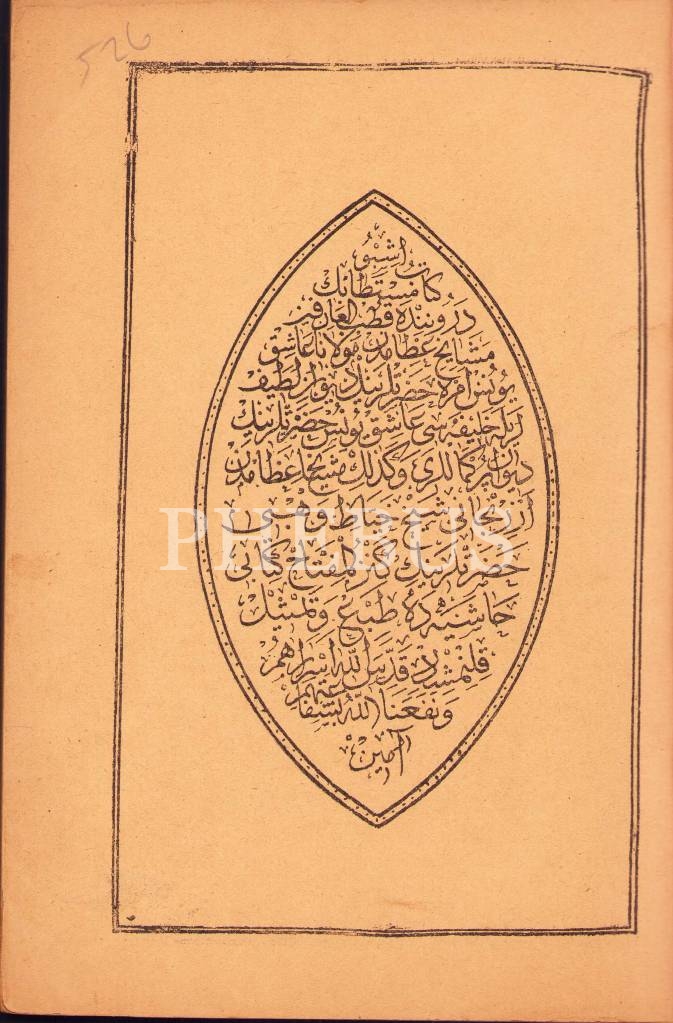 526
اشبو
كتاب مستطابك
درونده قطب العارفين
مشايخ عظامدن مولانا عاشق
يونس امره حضرتلرينك ديوان لطيف
ايله خليفه سى عاشق يونس حضرتلرينك
ديوان كماللرى وكذلك مشايخ عظامدن
ازرنجانى شيخ خياط وهبى
حضرتلرينك كنز المفتاح كتابى
حاشيه ده طبع وتمثيل
قلنمشدر قدس الله اسرارهم
ونفعنا الله بشفاعتهم
آمين
PHEBUS